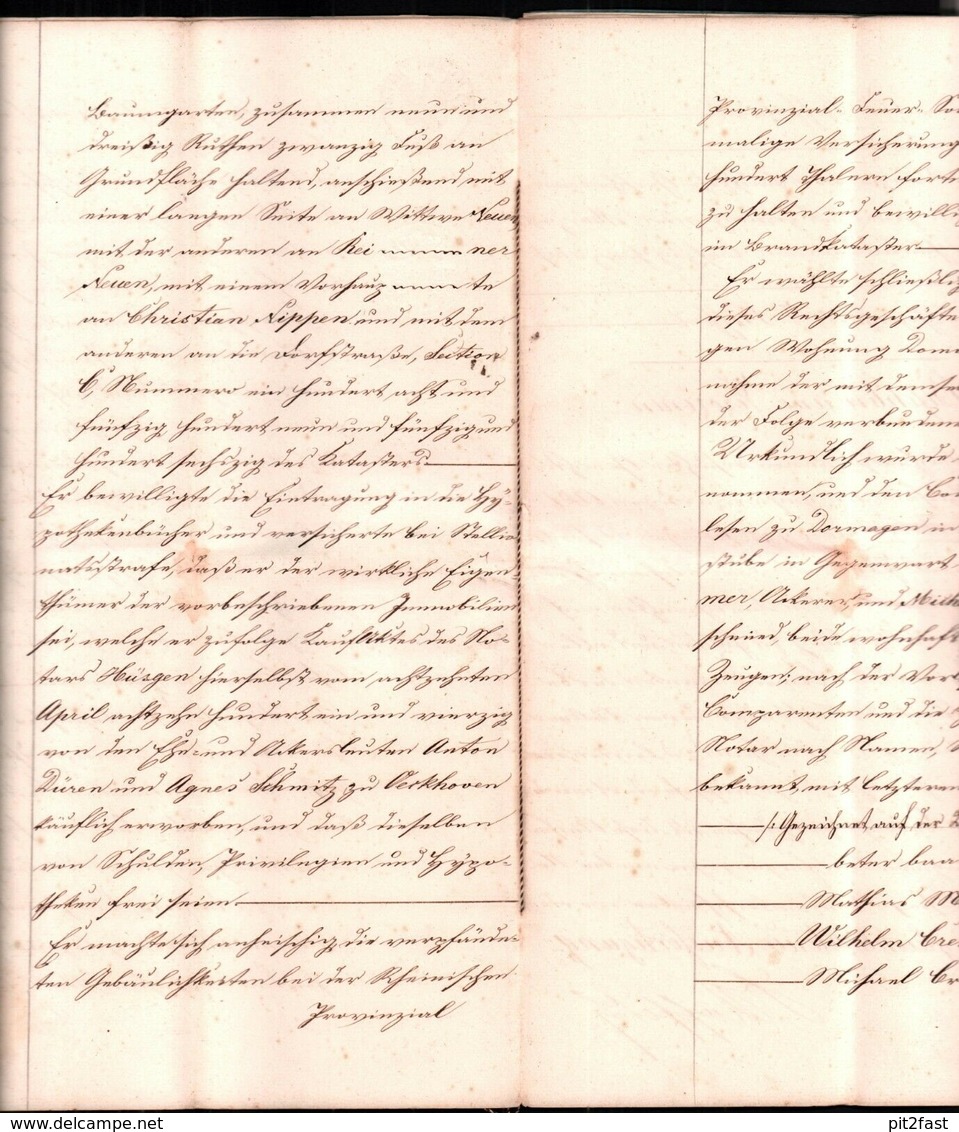 Baumgarten, zusammen neun und
dreißig Ruthen zwanzig Fuß an
Grundfläche haltend, anschießend mit
einer langen Seite an Wittwe Neuen,
mit der anderen an Rei ner
Neuen, mit einem Vorhaupte
an Christian Nippen und mit dem
anderen an die Dorfstraße, Section
C, Nummero ein hundert acht und
fünfzig hundert neun und fünfzig und
hundert sechszig des Katasters.
Er bewilligte die Eintragung in die Hy=
pothekenbücher und versicherte bei Stellio
natsstrafe, daß er der wirkliche Eigen=
thümer der vorbeschriebenen Immobilien
sei, welche er zufolge Kaufaktes des No=
tars Hüsgen hierselbst vom achtzehnten
April achtzehn hundert ein und vierzig
von den Ehe= und Ackersleuten Anton
Düren und Agnes Schmitz zu Oeckhoven
käuflich erworben, und daß dieselben
von Schulden, Privilegien und Hypo=
theken frei seien.
Er machte sich anheischig die verpfände=
ten Gebäulichkeiten bei der Rheinischen
Provinzial
Provinzial= Feuer= So
malige Versicherung
hundert Thalern fort
zu halten und bewilli
im Brandkataster
Er wählte schließlich
dieses Rechtsgeschäfte
gen Wohnung Dorm
nahme der mit demse
der Folge verbunden
Urkundlich wurde
nommen, und den Co
lesen zu Dormagen in
stube in Gegenwart
mer, Ackerer, und Mich
schmied, beide wohnhaft
Zeugen; nach der Vor
Comparenten und die
Notar nach Namen,
bekannt, mit letzteren
/: Gezeichnet auf der
beter baa
Mathias M
Wilhelm Cre
Michael Br
www.delcampe.net
pit2fast